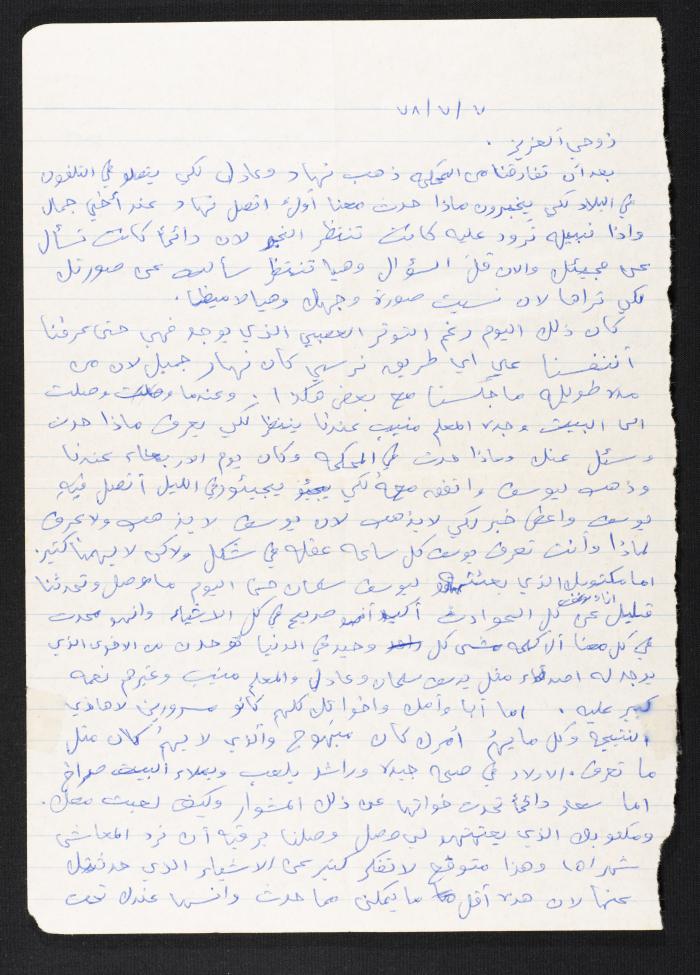 ٧٨/٧/٧
زوجي العزيز .
بعد أن تفارقنا من المحكمه ذهب نهاد وعادل لكي يتصلو في التلفون
في البلاد لكي يخبرون ماذا حدث معنا أولاً اتصل نهاد عند أختي جمال
واذا نبيله ترود عليه كانت تنتظر الخبر لان دائماً كانت تسأل
عن مجيئك والان قل السؤال وهيا تنتظر سألت عن صورتك
لكي تراها لان نسيت صورة وجهك وهيا
كان ذلك اليوم رغم التوتر العصبي الذي يوجد فهي حتى عرفنا
أنفسنا علي اي طريق نرسي كان نهار جميل لان من
مده طويله ما جلسنا مع بعض هكذا . وعندما وصلت
الى البيت وجده المعلم منيب عندنا ينتظر لكي يعرف ماذا حدث
وسئل عنك وماذا حدث في المحكمه وكان يوم الاربعاء عندنا
وذهب ليوسف واتفقه معهُ لكي يجيئو في الليل أتصل فيهِ
يوسف واعطى خبر لكي لا يذهب لان يوسف لا يذهب ولا نعرف
لماذا وأنت تعرف يوسف كل ساعه عقله في شكل ولاكن لا يهمنا كتير.
اما مكتوبك الذي بعثته ليوسف سلمان حتى اليوم ما وصل وتحدثنا
قليل انا ويوسف عن كل الحوادث أكيد صريح في كل الاشياء وانهو تحدث
في كل معنا ألا كلمه كل وحيد في الدنيا هو حدث من الاقوى الذي
يوجد له اصدقاء مثل يوسف سلمان وعادل والمعلم منيب وغيرهم نعمه
كبير عليه . اما أبا وأمك واخواتك كلهم كانو مسرورين لاهاذي
النتيجة وكل ما يهمُ أمرك كان مبهوج والذي لا يهمُ كان مثل
ما تعرف . الاولاد في صحه جيده وراشد يلعب ويملاء البيت صراخ
اما سعاد دائماً تحدث خواتها عن ذلك المشوار وكيف لعبت معك.
ومكتوبك الذي وصل وصلنا برقيه أن نرد المعاشى
شهراها وهذا متوقع لا تفكر كتير عن الاشياء الذي حدثتك
عنها لان هذه أقل ما يمكن مما حدث وانسها عندك تحت